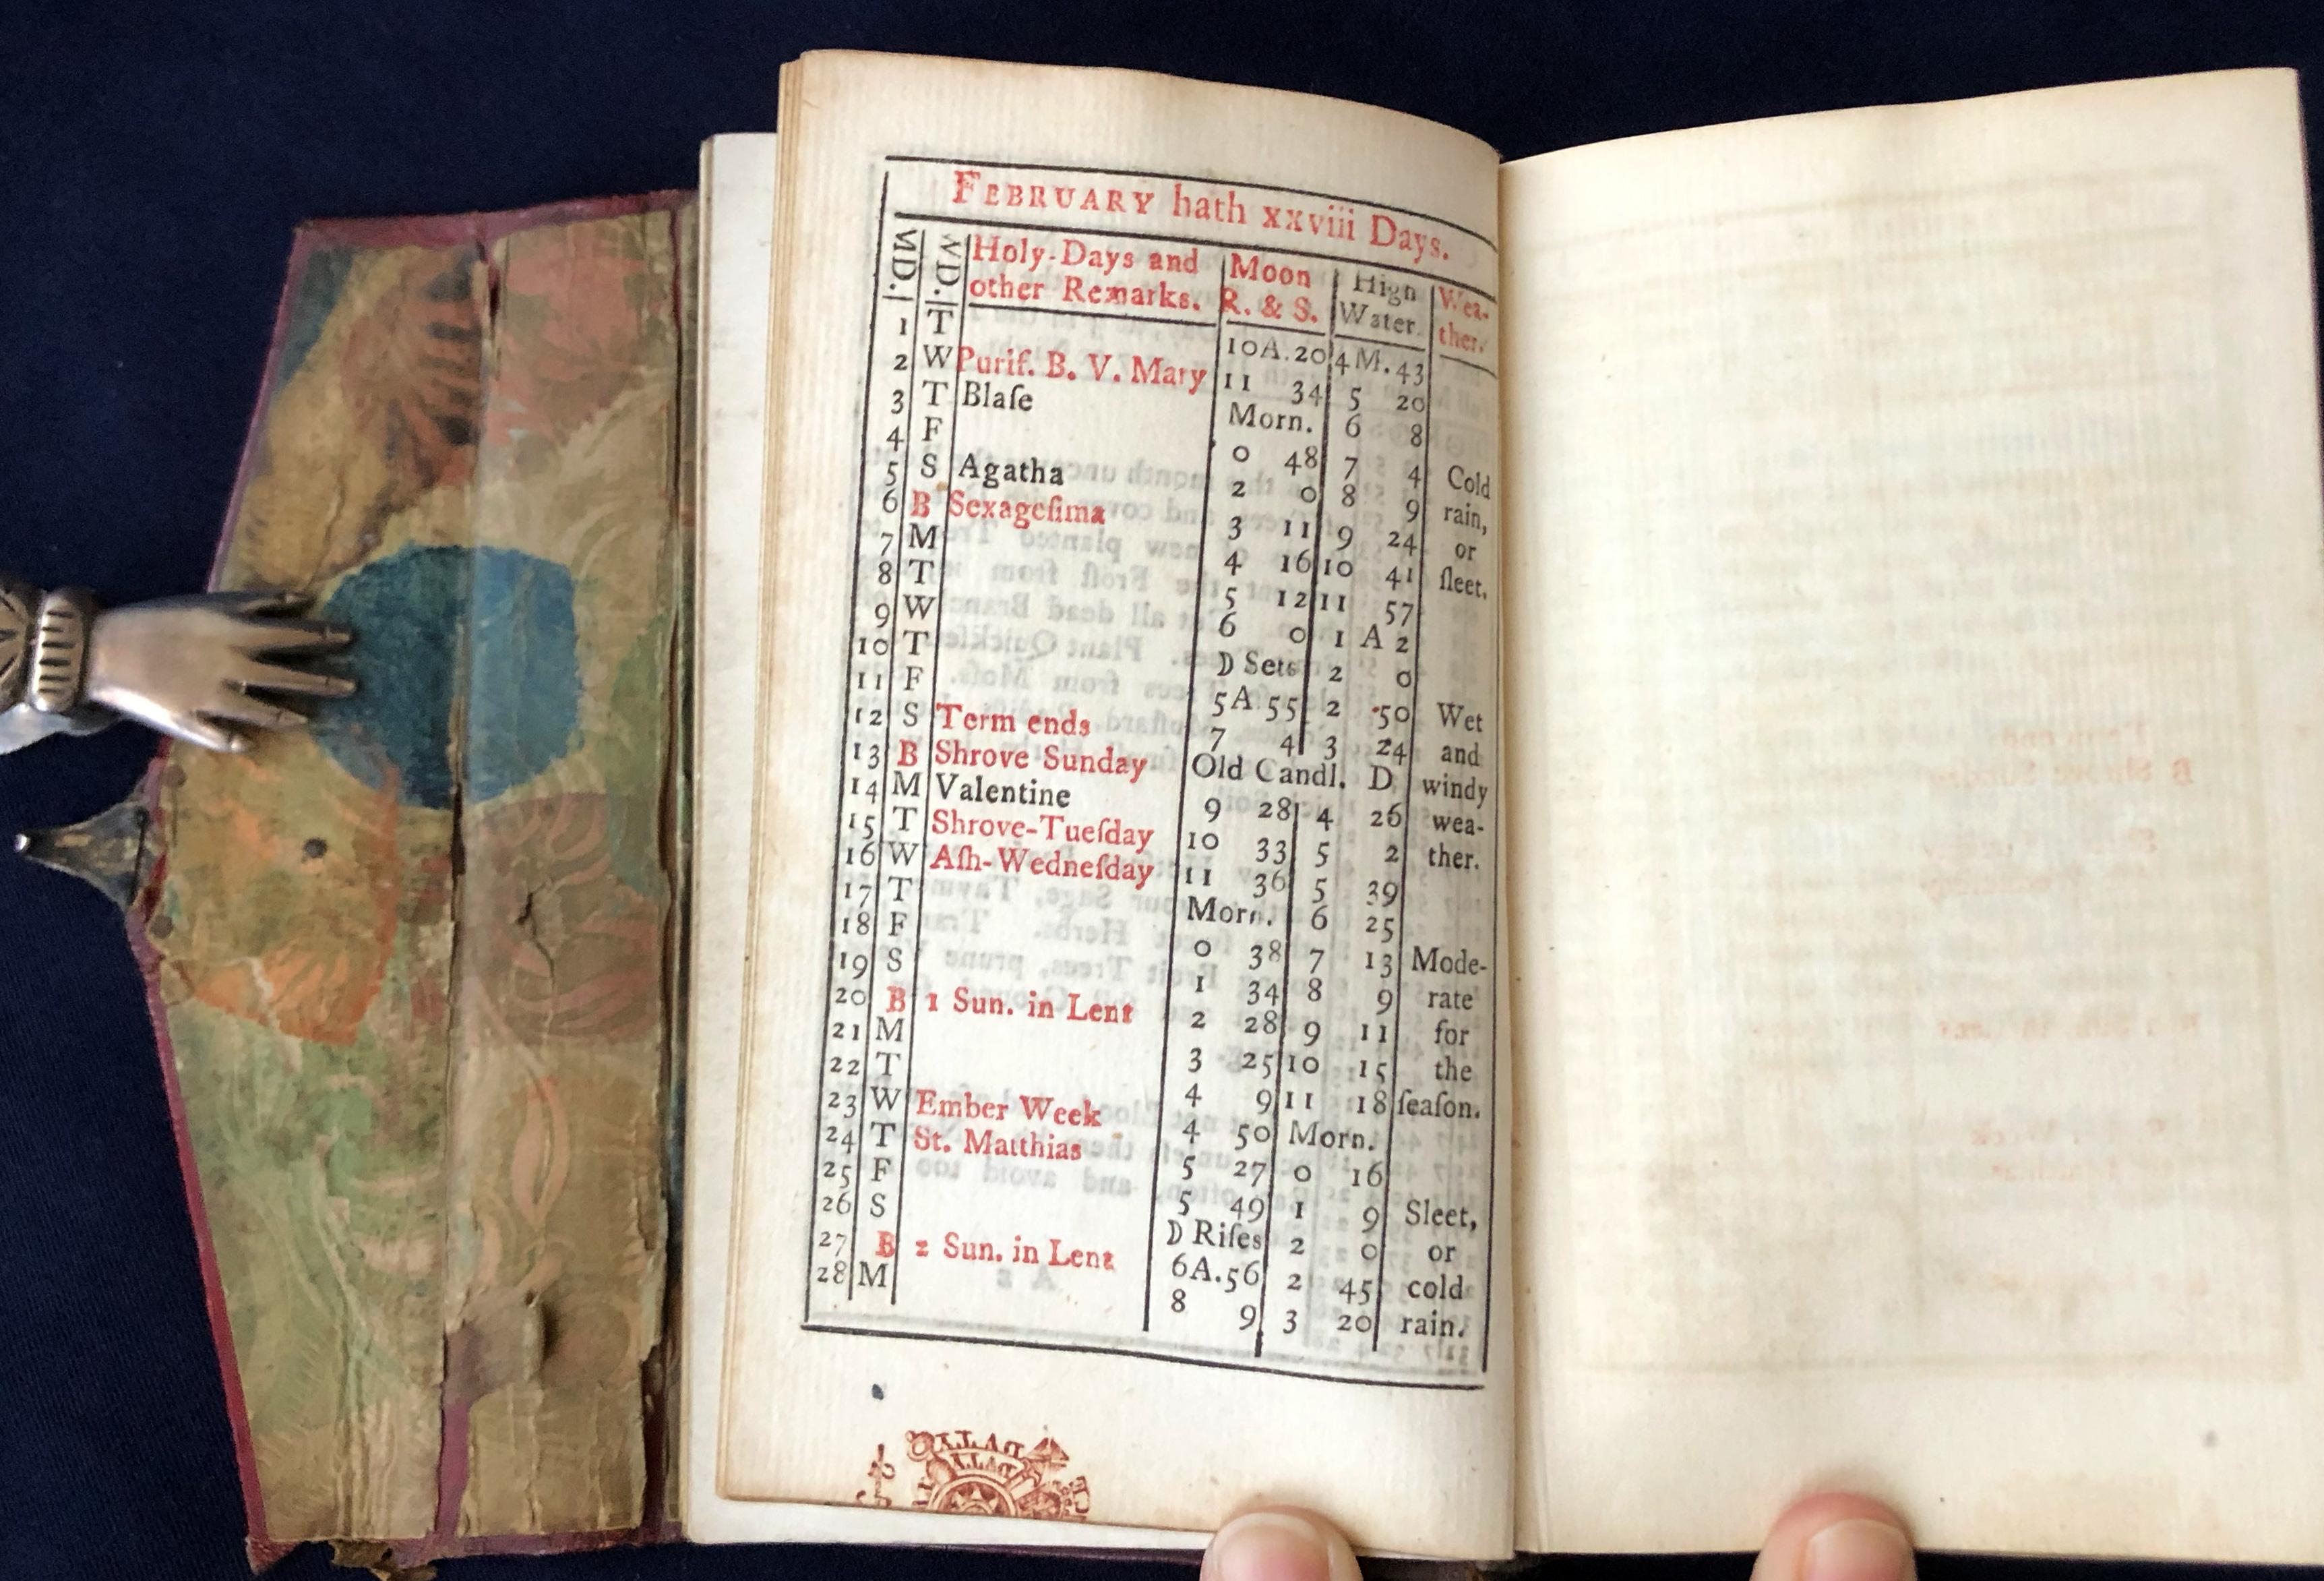 FEBRUARY hath xxviii Days.
MD. WD. Holy-Days and other Remarks. Moon R. & S. High Water. Wea-ther.
1 T 10A.20 4M.43
2 W Purif. B. V. Mary 11 34 5 20
3 T Blaſe Morn. 6 8
4 F 0 48 7 4 Cold
5 S Agatha 2 0 8 9 rain,
6 B Sexageſima 3 11 9 24 or
7 M 4 16 10 41 ſleet.
8 T 5 12 11 57
9 W 6 0 1 A 2
10 T ☽ Sets 2 0
11 F 5A 55 2 50 Wet
12 S Term ends 7 4 3 24 and
13 B Shrove Sunday Old Candl. D windy
14 M Valentine 9 28 4 26 wea-
15 T Shrove-Tueſday 10 33 5 2 ther.
16 W Aſh-Wedneſday 11 36 5 39
17 T Morn. 6 25
18 F 0 38 7 13 Mode-
19 S 1 34 8 9 rate
20 B 1 Sun. in Lent 2 28 9 11 for
21 M 3 25 10 15 the
22 T 4 9 11 18 ſeaſon.
23 W Ember Week 4 50 Morn.
24 T St. Matthias 5 27 0 16
25 F 5 49 1 9 Sleet,
26 S ☽ Riſes 2 0 or
27 B 2 Sun. in Lent 6A.56 2 45 cold
28 M 8 9 3 20 rain.